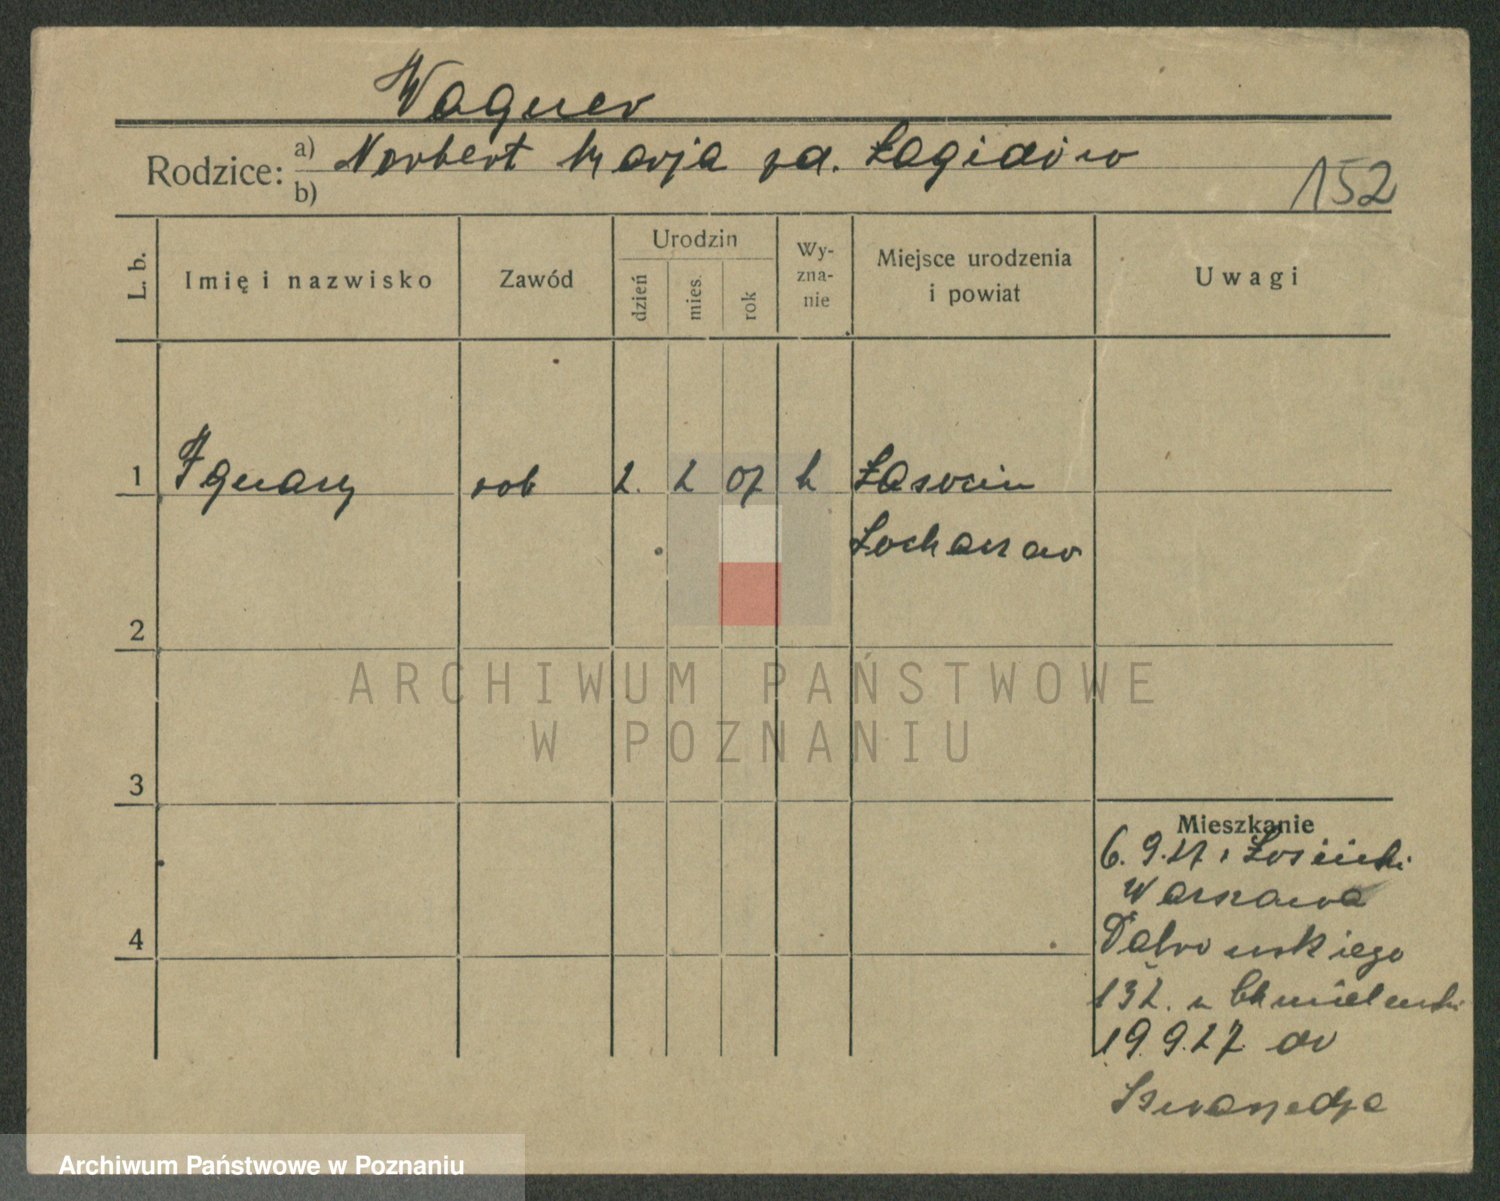 Wagner
Rodzice: a) Norbert Marja zd. Łagidów
b)
152
L. b. Imię i nazwisko Zawód Urodzin dzień mies. rok Wy-zna-nie Miejsce urodzenia i powiat Uwagi
1 Ignacy rob 2. 2 07 k Łasocin
Sochaczew
2
3
4
Mieszkanie
6.9.27
Warszawa
Dabrowskiego
132. u Chmielewski
19.9.27 do
ARCHIWUM PAŃSTWOWE
W POZNANIU
Archiwum Państwowe w Poznaniu